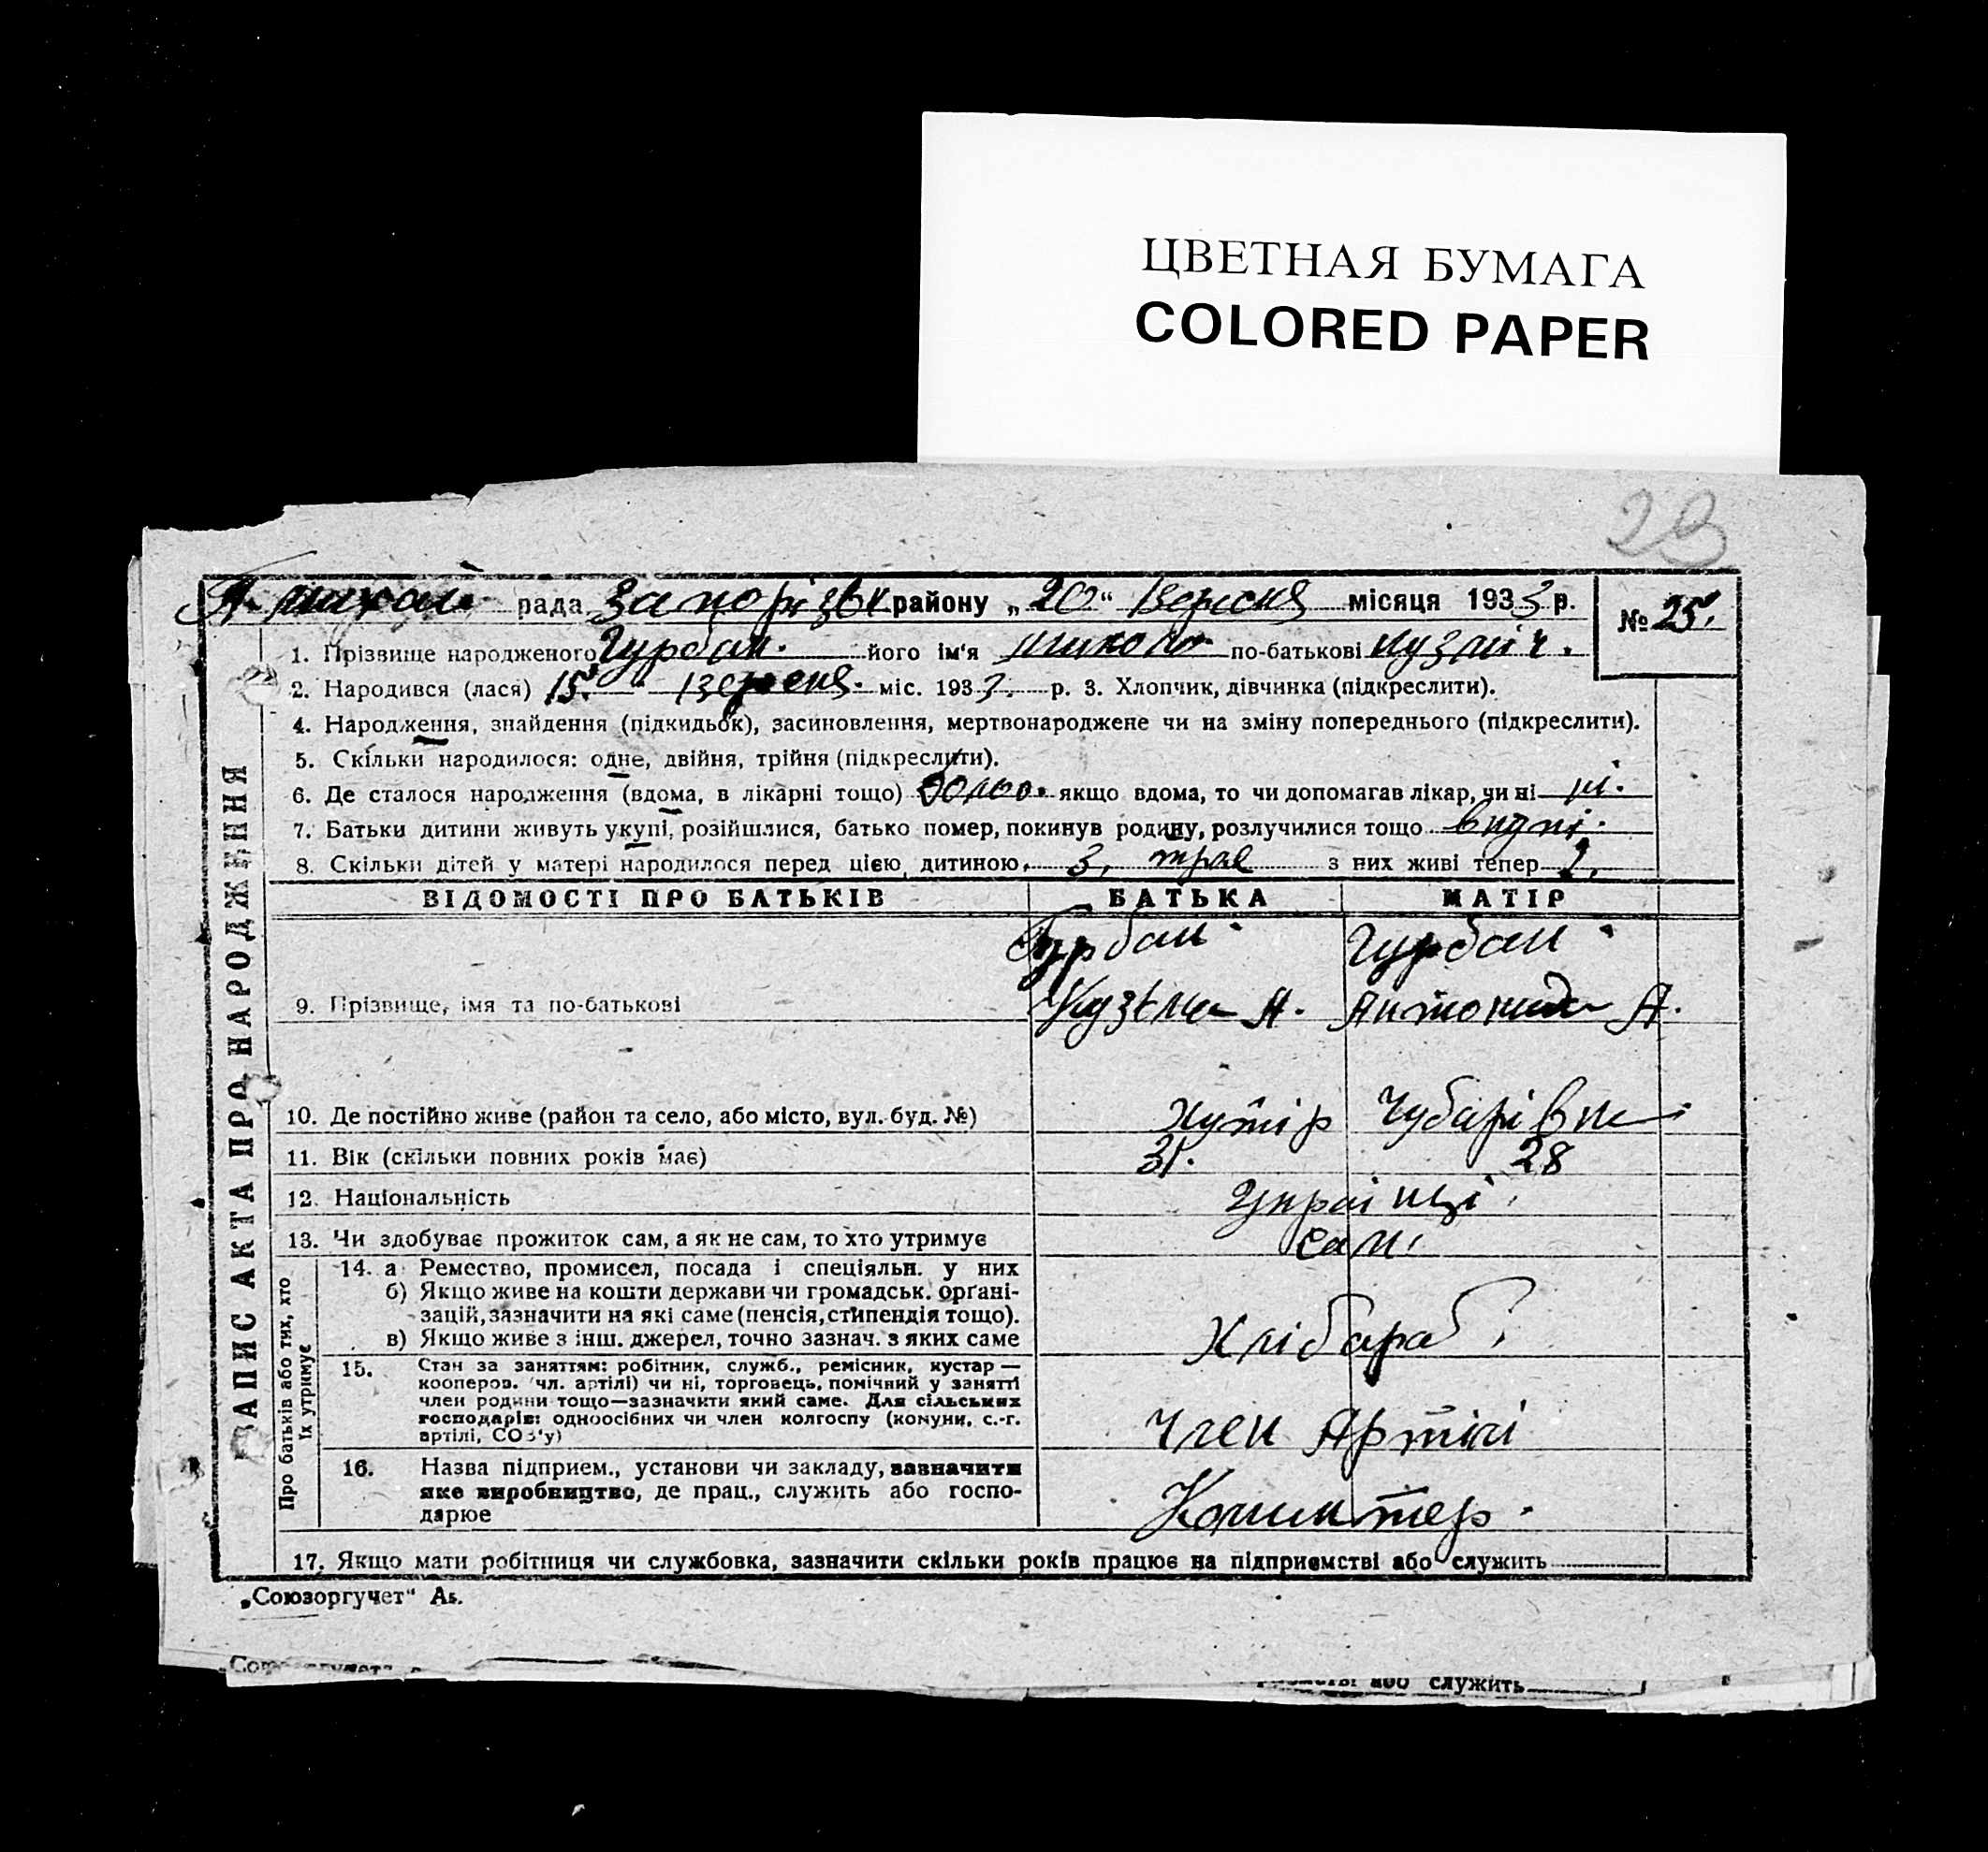 ЦВЕТНАЯ БУМАГА
COLORED PAPER
23
рада Запорізьк району „20“ Вересня місяця 1933 р.
№ 25.
1. Прізвище народженого Гурбан. його ім'я по-батькові Кузмич.
2. Народився (лася) 15. Вересня. міс. 1933. р. 3. Хлопчик, дівчинка (підкреслити).
4. Народження, знайдення (підкидьок), засиновлення, мертвонароджене чи на зміну попереднього (підкреслити).
5. Скільки народилося: одне, двійня, трійня (підкреслити).
6. Де сталося народження (вдома, в лікарні тощо) якщо вдома, то чи допомагав лікар, чи ні ні.
7. Батьки дитини живуть укупі, розійшлися, батько помер, покинув родину, розлучилися тощо вкупі.
8. Скільки дітей у матері народилося перед цією дитиною, 3, троє з них живі тепер 2.
ВІДОМОСТІ ПРО БАТЬКІВ БАТЬКА МАТІР
Гурбан. Гурбан.
9. Прізвище, імя та по-батькові Кузьма А. Антонида А.
10. Де постійно живе (район та село, або місто, вул. буд. №) Хутір Чубарівка
11. Вік (скільки повних років має) 31. 28
12. Національність Українці.
13. Чи здобуває прожиток сам, а як не сам, то хто утримує сам.
14. а Ремество, промисел, посада і спеціяльн. у них
б) Якщо живе на кошти держави чи громадськ. орґані-
зацій, зазначити на які саме (пенсія, стипендія тощо).
в) Якщо живе з інш. джерел, точно зазнач. з яких саме Хлібараб.
15. Стан за заняттям: робітник, служб., ремісник, кустар —
кооперов. чл. артілі) чи ні, торговець, помічний у занятті
член родини тощо—зазначити який саме. Для сільських
господарів: одноосібних чи член колгоспу (комуни, с.-г.
артілі, СОЗ'у) Член Артілі
16. Назва підприєм., установи чи закладу, зазначити
яке виробництво, де прац., служить або госпо-
дарює Комінтер.
17. Якщо мати робітниця чи службовка, зазначити скільки років працює на підприємстві або служить
ЗАПИС АКТА ПРО НАРОДЖЕННЯ
Про батьків або тих, хто
їх утримує
„Союзоргучет“ А5.
або служить